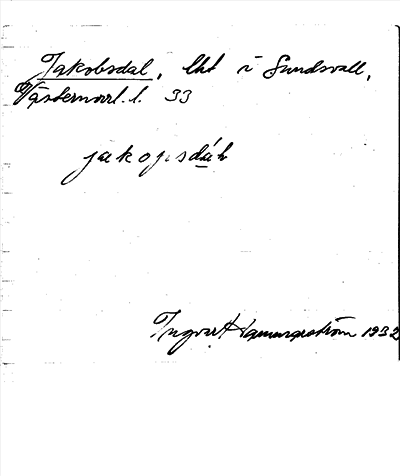 Jakobsdal, lht i Sundsvall,
Västernorrl. l. 33
jakopsdáh
Ingvar Hammarström 1932